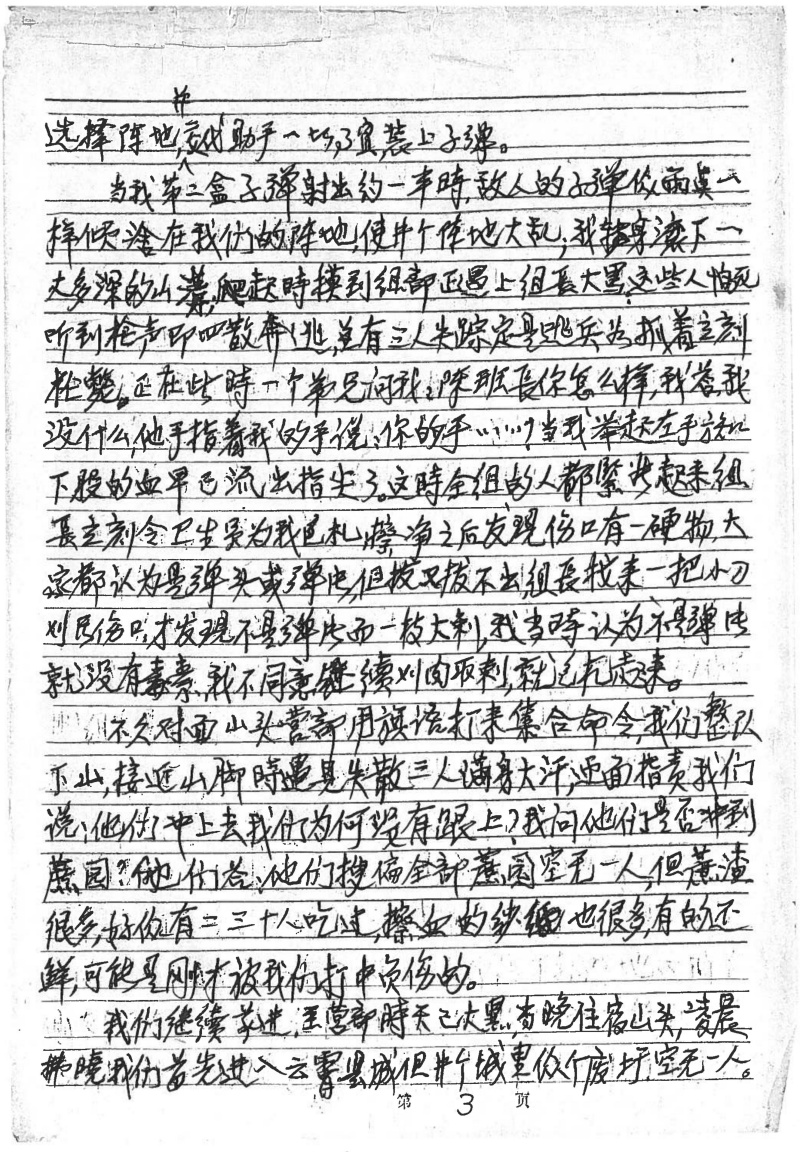 和
选择阵地,交代助手一切,了宜,装上子弹。
当我第二盒子弹射出约一半時,敌人的子弹似雨点一
样倾泻在我们的阵地,使井个阵地大乱,我转身滚下一
丈多深的山,爬起時摸到组部正遇上组長大黑,这些人怕死
听到枪声即四散奔逃,总有三人失踪定是逃兵为,抓着立刻
枪毙。正在此時一个弟兄问我:陈班長你怎么样,我答我
没什么,他手指着我的手说:你的手……?当我举起左手放以
下股的血早已流出指尖了。这時全组的人都緊张起来组
長立刻令卫生员为我包札,擦净之后发现伤口有一硬物,大
家都认为是弹头或弹片,但拔又拔不出,组長找来一把小刀
划民伤口,才发现不是弹片而一枝大刺,我当時认为不是弹片
就没有毒素,我不同意继续划肉取刺,就包扎起来。
不久对面山头营部用旗语打来集合命令,我们整队
下山,接近山脚時遇見失散三人满身大汗,迎面指责我们
说:他们冲上去我们为何没有跟上?我问他们是否冲到
蔗园?他们答:他们搜遍全部蔗园空无一人,但蔗渣
很多,好似有二三十人吃过,擦血的纱也很多,有的还
鲜,可能是刚才被我们打中负伤的。
我们继续前进,至营部時天已大黑,当晚住宿山头,凌晨
拂曉我们首先进入云霄县城但井个城里似个废圩,空无一人。
第 3 页